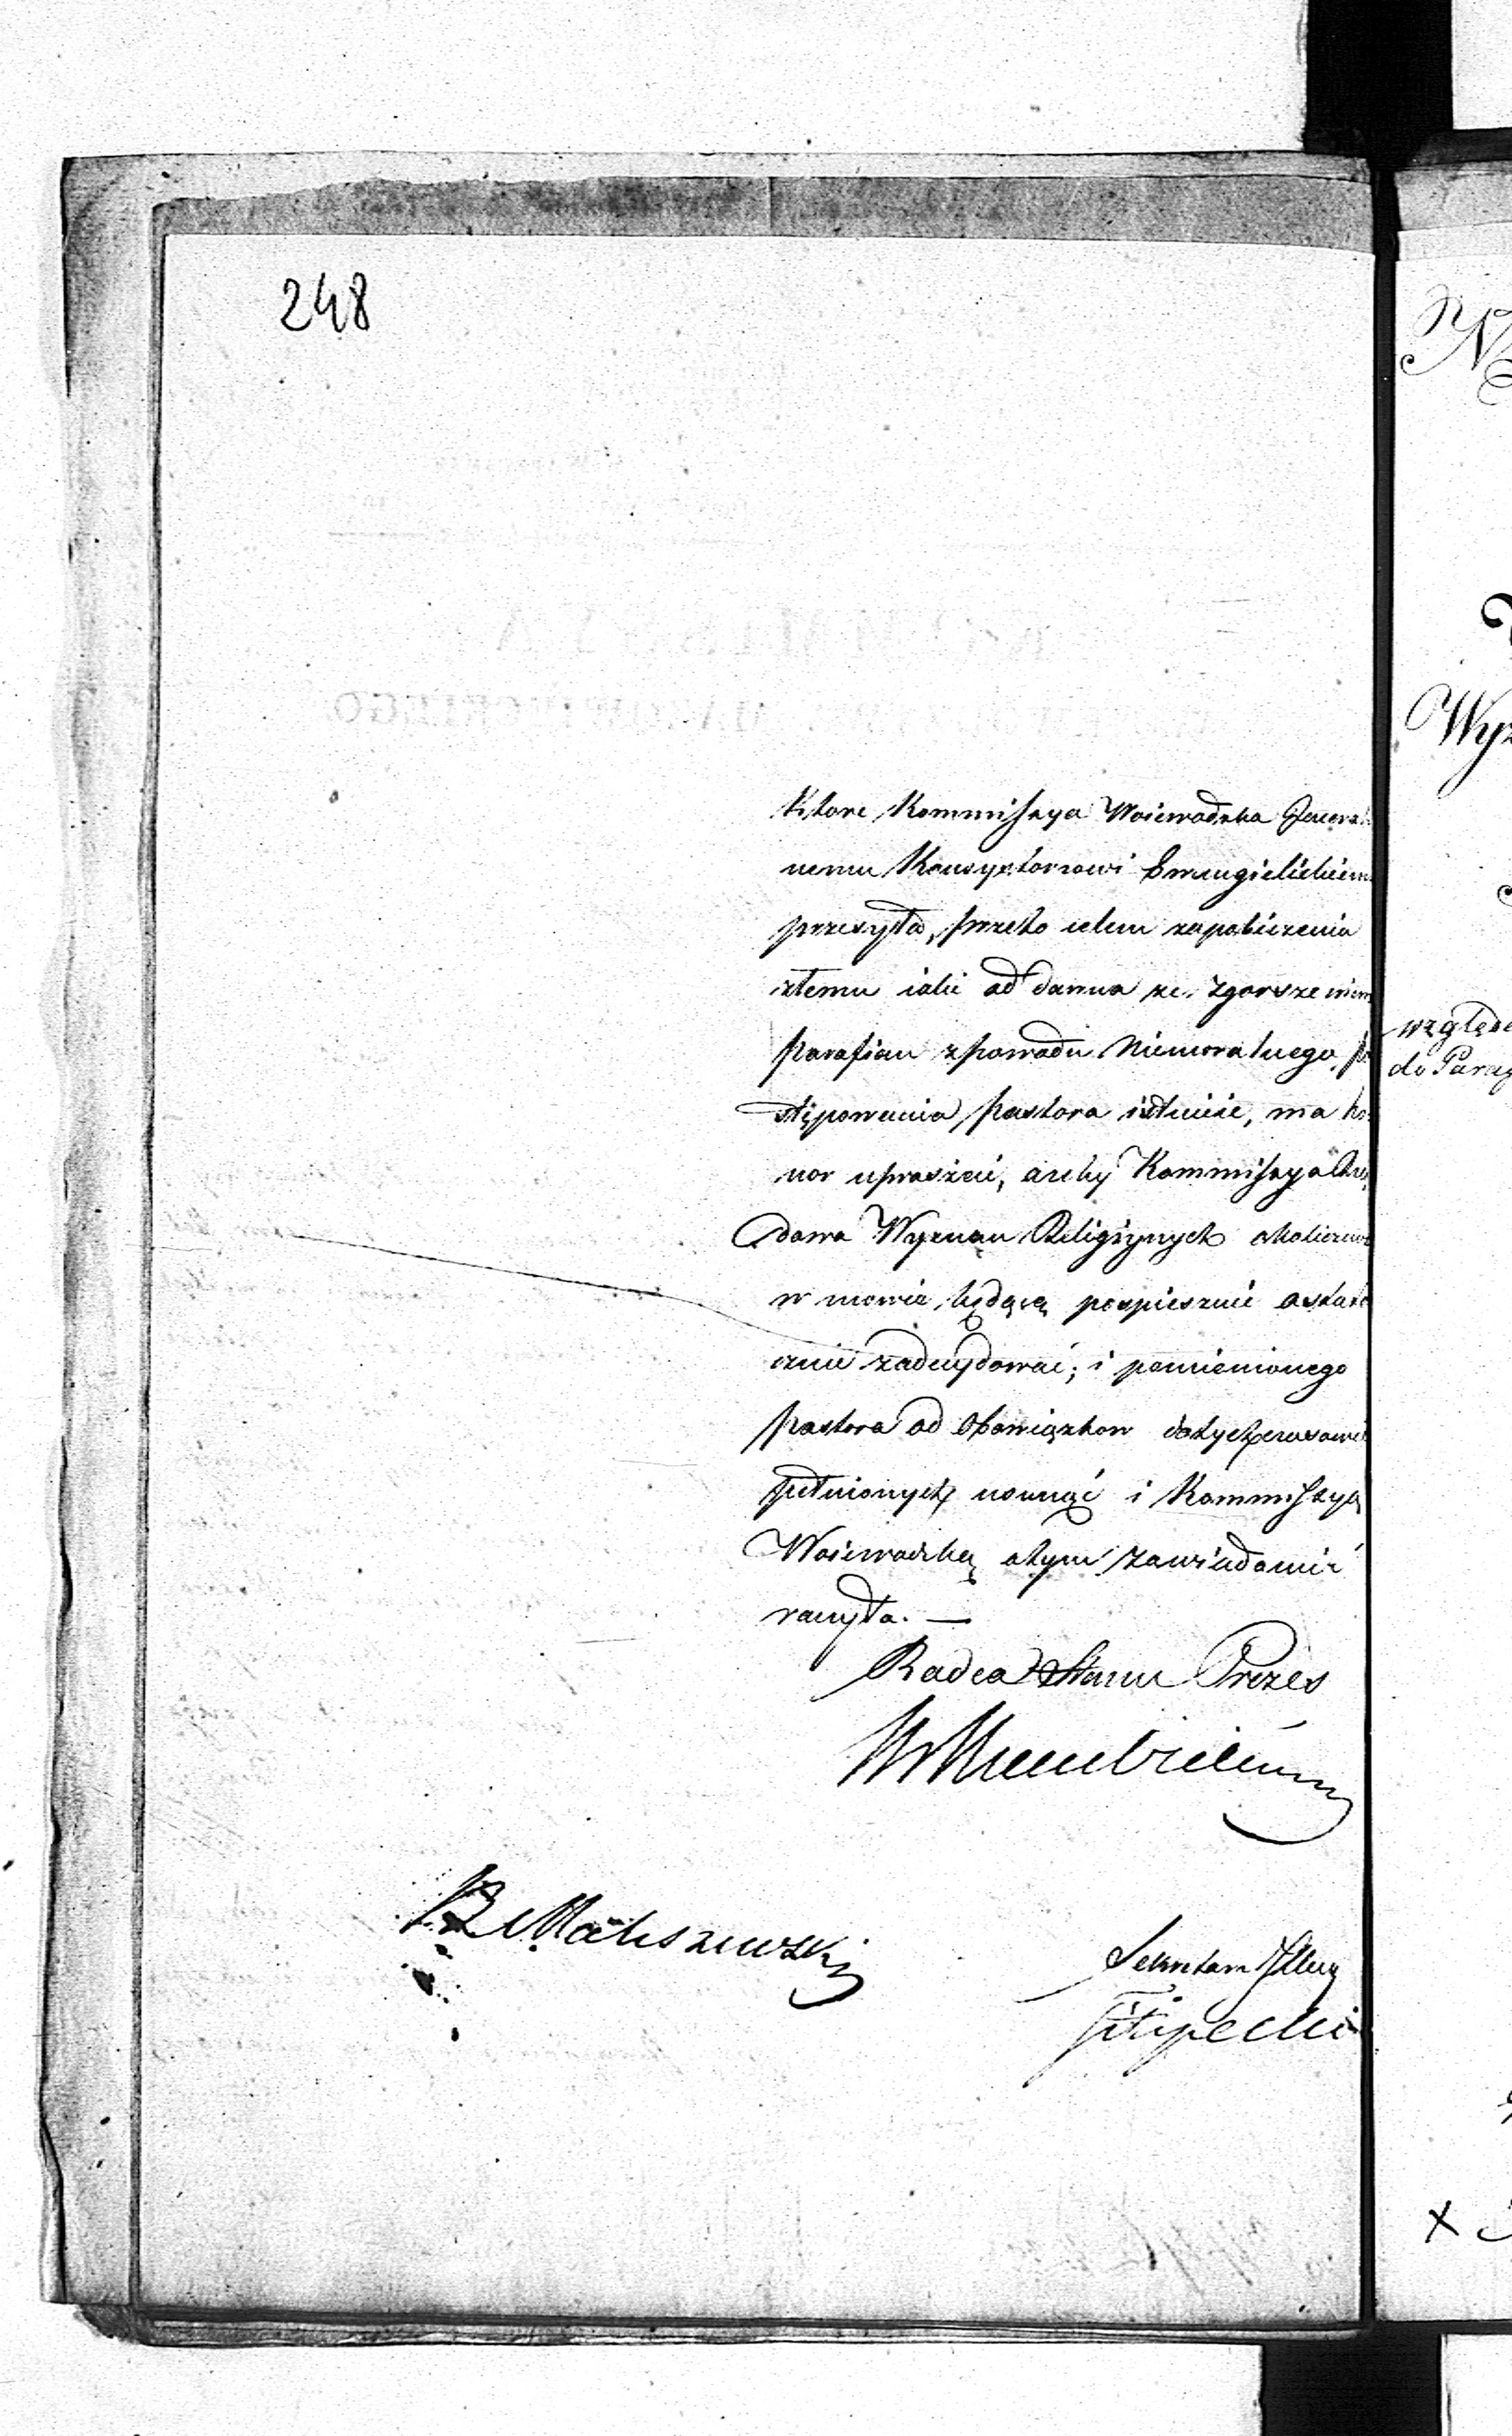 248
Ktore Kommissya Woiewodzka Jeneral
nemu Konsystorzowi Ewangielickiem
przesyła, przeto celem zapobieżenia
złemu iakie od dawna ze zgorszeniem
parafian zpowodu Niemoralnego p
stępowania pastora istnieie, ma ho
nor upraszać, ażeby Kommissya Rzą
dowa Wyznan Religiynych okoliczno
w mowie będącą pospiesznie ostate
cznie zadecydować; i pomienionego
pastora od Obowiązkow dotychczasowie
pełnionych usunąć i Kommissyą
Woiewodzką otym zawiadomić
raczyła. —
Radca Stanu Prezes
Sekretarz Jlny
Filipecki
względe
do Paraf
Wyz